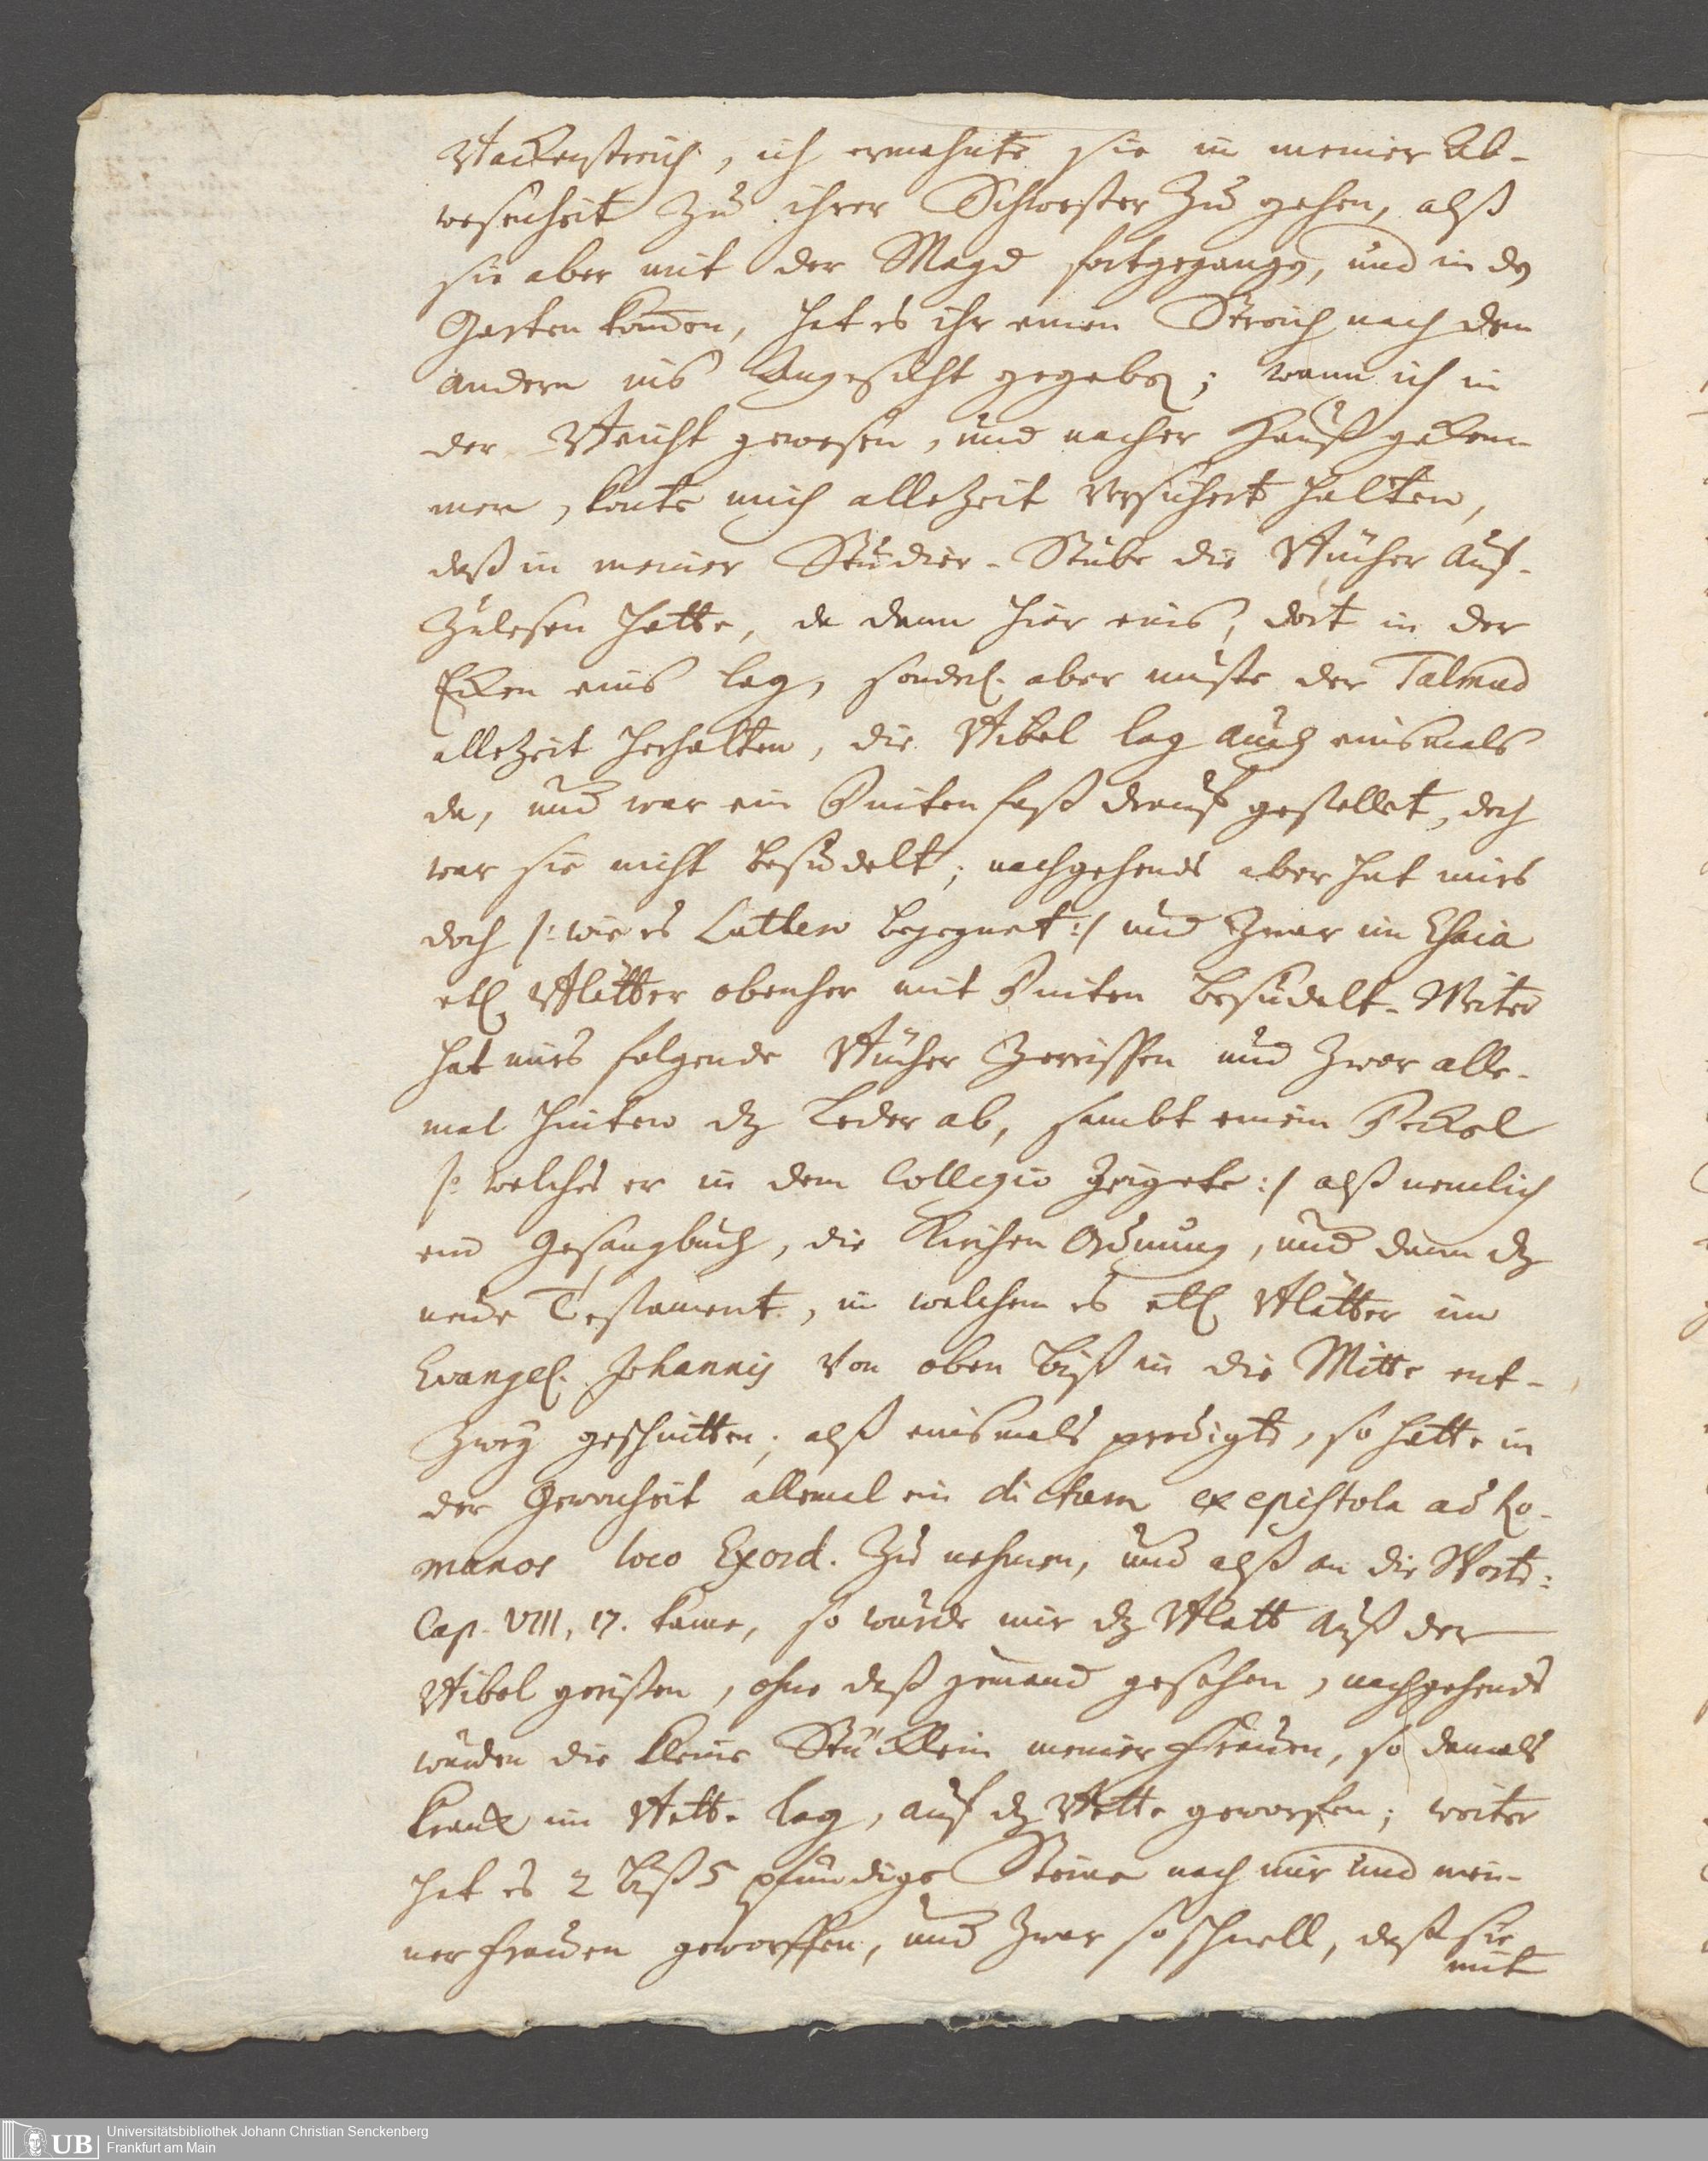 Backenstreich, ich ermahnte sie in meiner Ab-
wesenheit zu ihrer Schwester zu gehen, alß
sie aber mit der Magd fortgegangen, und in den
Garten kom̄en, hat es ihr einen Streich nach dem
andern ins Angesicht gegeben; wann ich in
der Beicht gewesen, und nacher Hauß gekom-
men, konte mich allezeit versichert halten,
daß in meiner Studier-Stube die Bücher auf-
zulesen hatte, da dann hier eins, dort in der
Ecken eins lag, sonderl. aber muste der Talmud
allezeit herhalten, die Bibel lag auch einsmals
da, und war ein Dintenfaß drauf gestellet, doch
war sie nicht besudelt; nachgehends aber hat mirs
doch /: wie es Luthero begegnet :/ und zwar im Esaia
etl. Blätter obenher mit Dinten besudelt. Weiter
hat mirs folgende Bücher zerrissen und zwar alle-
mal hinten dz Leder ab, sambt einem Deckel
/: welches er in dem Collegio zeigete :/ alß nemlich
ein Gesangbuch, die Kirchen Ordnung, und dann dz
neue Testament, in welchem es etl. Blätter im
Evangel. Johannis von oben biß in die Mitte ent-
zwey geschnitten; alß einsmals predigte, so hatte in
der Gewonheit allemal ein dictum ex epistola ad Ro-
manos loco Exord. zu nehmen, und alß an die Worte:
Cap. VIII, 17. kame, so wurde mir dz Blatt auß der
Bibel gerißen, ohne daß jemand gesehen, nachgehends
wurden die kleine Stücklein meiner Frauen, so damals
kranck im Bette lag, auf dz Bette geworfen; weiter
hat es 2 biß 5 pfündige Steine nach mir und mei-
ner Frauen geworffen, und zwar so schnell, daß sie
mit
Universitätsbibliothek Johann Christian Senckenberg
Frankfurt am Main
UB